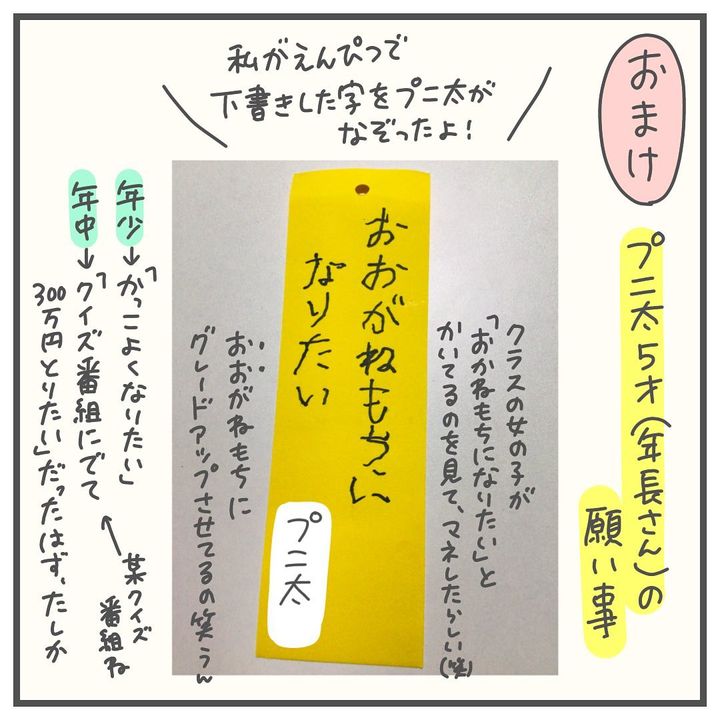 おまけ
プニ太5才(年長さん)の
願い事
私がえんぴつで
下書きした字をプニ太が
なぞったよ!
クラスの女の子が
「おかねもちになりたい」と
かいてるのを見て、マネしたらしい(笑)
おおがねもちに
なりたい
プニ太
おおがねもちに
グレードアップさせてるの笑うん
年少→「かっこよくなりたい」
年中→「クイズ番組にでて
300万円とりたい」だったはず、たしか
某クイズ
番組ね